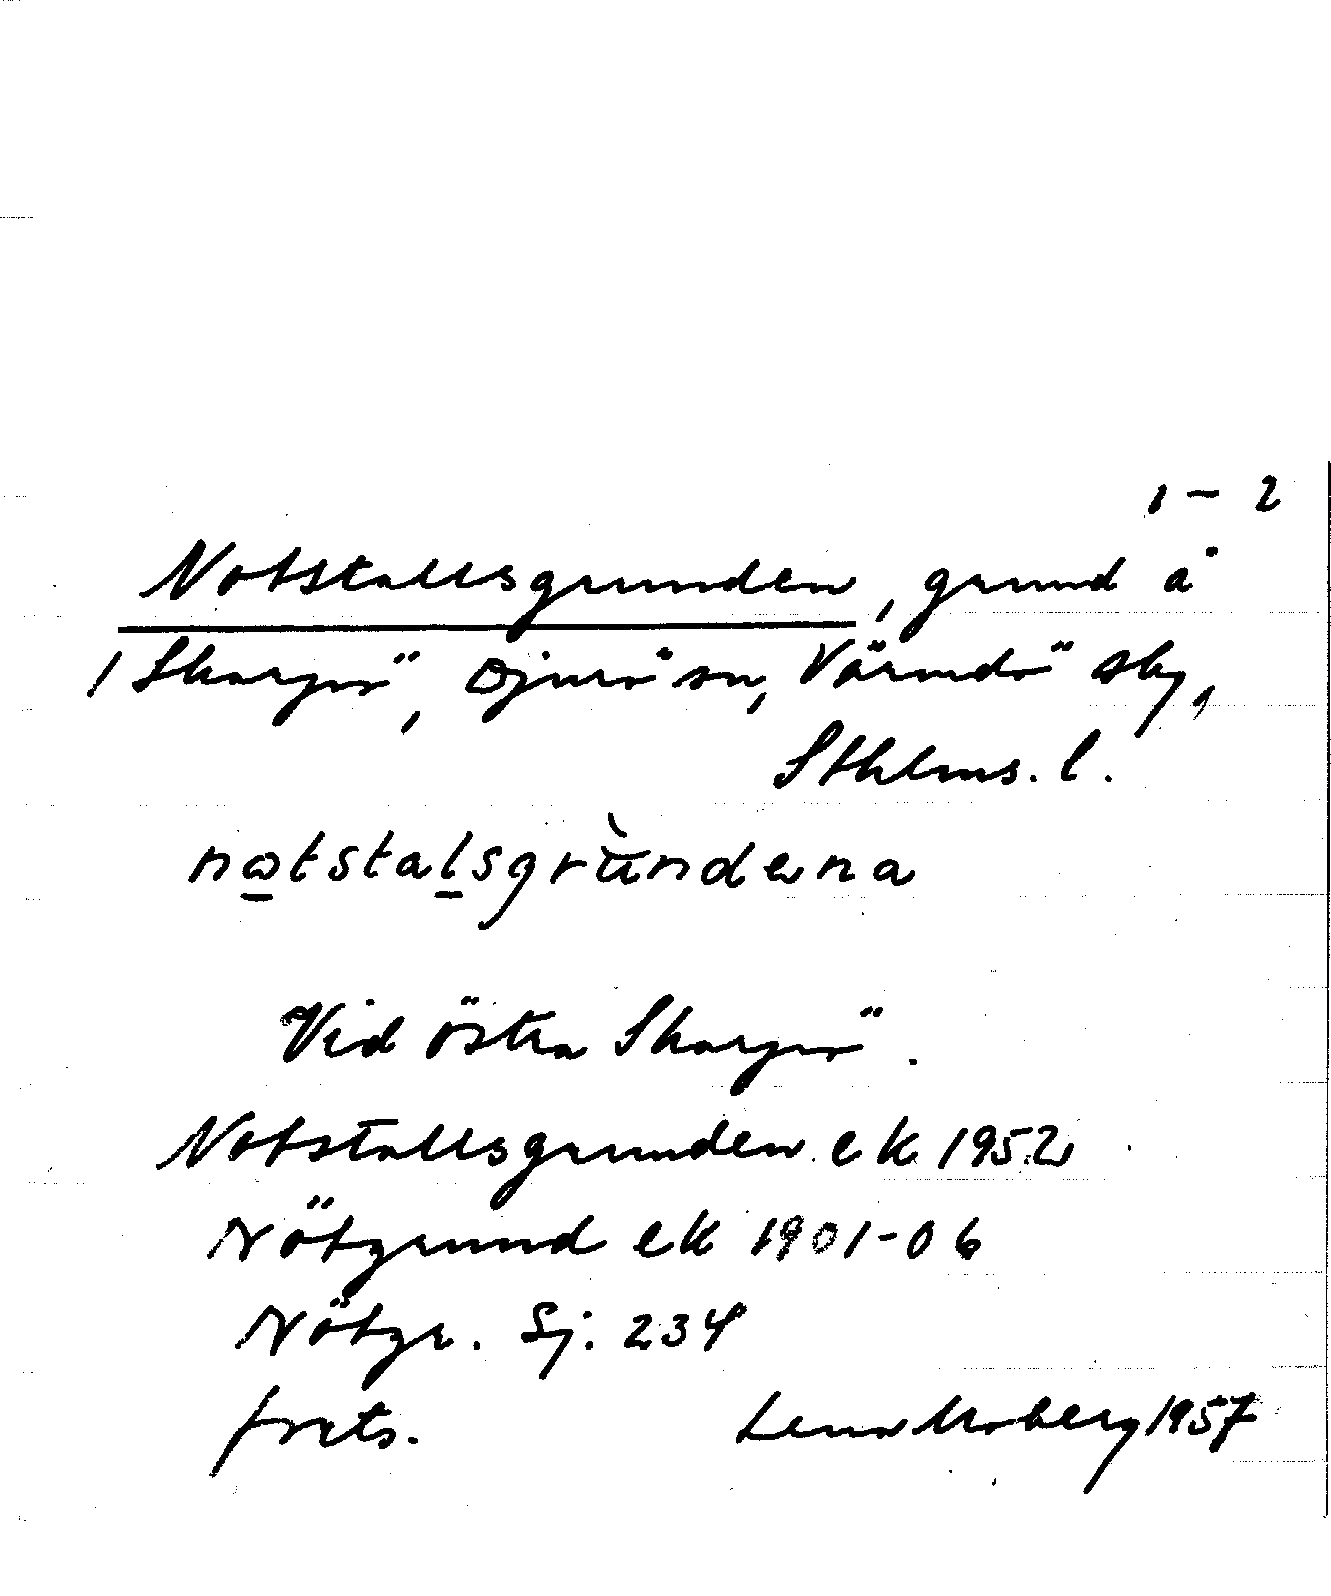 1 – 2
Notstallsgrunden, grund å
/ Skarpö, Djurö sn, Värmdö sky,
Sthlms. l.
notstalsgrùndena
Vid Östra Skarpö.
Notstallsgrunden ek 1952
Nötgrund ek 1901-06
Nötgr. Sj. 234
forts. Lena Moberg 1957